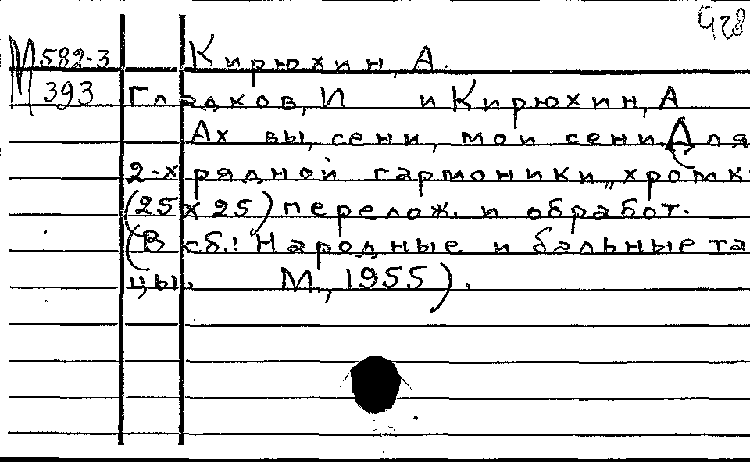 М 582-3 Кирюхин, А.
393 Гладков, И и Кирюхин, А
Ах вы, сени, мои сени. Для
2-х рядной гармоники „хромк
(25 х 25) перелож. и обработ.
(В сб.: Народные и бальные та
цы. М., 1955).